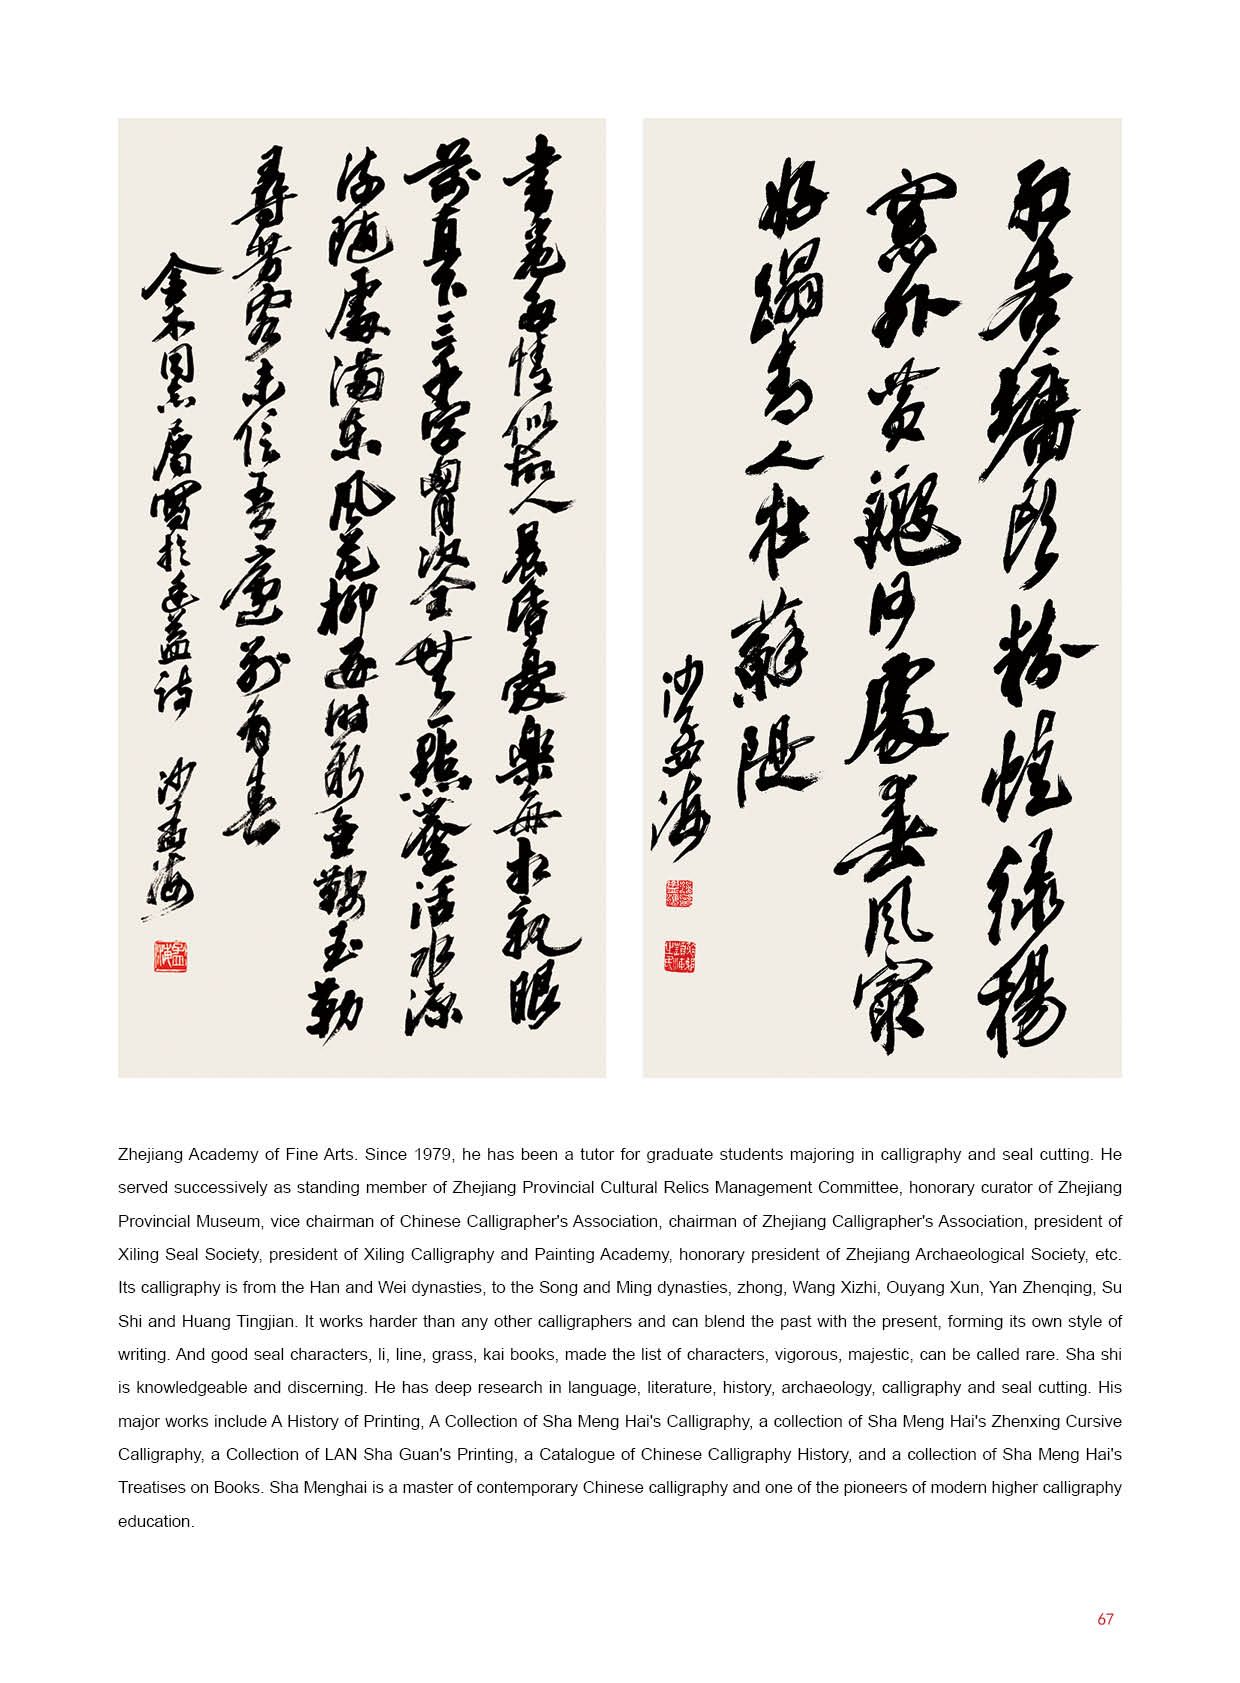 紅杏牆頭粉蝶綠楊
窗外黃鸝何處春風最
好蹋青人在蘇隄
沙孟海
書卷多情似故人晨昏憂樂每相親眼
前直下三千字胸次全無一點塵活水源
流隨處滿東風花柳逐時新金鞍玉勒
尋芳客未信吾廬別有春
金木同志屬寫於廷益詩 沙孟海
Zhejiang Academy of Fine Arts. Since 1979, he has been a tutor for graduate students majoring in calligraphy and seal cutting. He
served successively as standing member of Zhejiang Provincial Cultural Relics Management Committee, honorary curator of Zhejiang
Provincial Museum, vice chairman of Chinese Calligrapher's Association, chairman of Zhejiang Calligrapher's Association, president of
Xiling Seal Society, president of Xiling Calligraphy and Painting Academy, honorary president of Zhejiang Archaeological Society, etc.
Its calligraphy is from the Han and Wei dynasties, to the Song and Ming dynasties, zhong, Wang Xizhi, Ouyang Xun, Yan Zhenqing, Su
Shi and Huang Tingjian. It works harder than any other calligraphers and can blend the past with the present, forming its own style of
writing. And good seal characters, li, line, grass, kai books, made the list of characters, vigorous, majestic, can be called rare. Sha shi
is knowledgeable and discerning. He has deep research in language, literature, history, archaeology, calligraphy and seal cutting. His
major works include A History of Printing, A Collection of Sha Meng Hai's Calligraphy, a collection of Sha Meng Hai's Zhenxing Cursive
Calligraphy, a Collection of LAN Sha Guan's Printing, a Catalogue of Chinese Calligraphy History, and a collection of Sha Meng Hai's
Treatises on Books. Sha Menghai is a master of contemporary Chinese calligraphy and one of the pioneers of modern higher calligraphy
education.
67